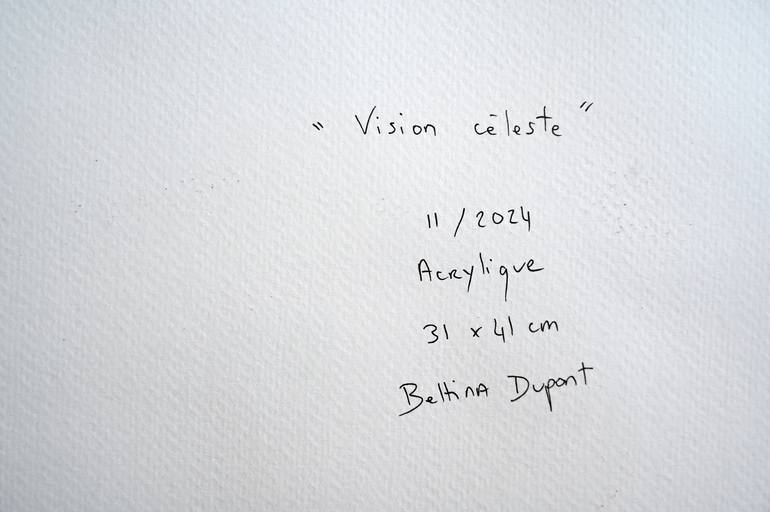 " Vision céleste "
11 / 2024
Acrylique
31 x 41 cm
Bettina Dupont